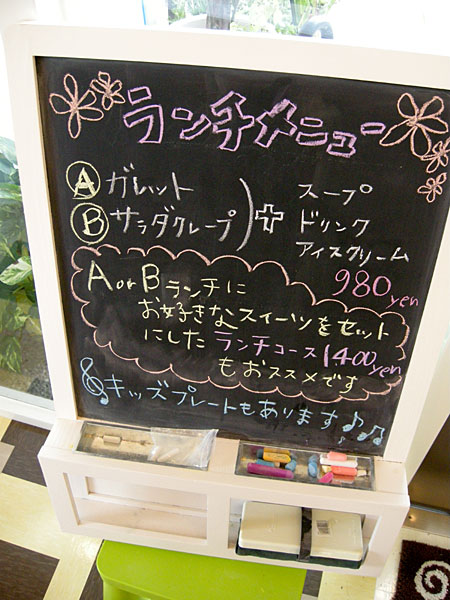 ランチメニュー
Ⓐ ガレット
Ⓑ サラダクレープ
+
スープ
ドリンク
アイスクリーム
980yen
A or B ランチに
お好きなスイーツをセット
にした ランチコース 1400yen
もおススメです
キッズプレートもあります♪♪♫